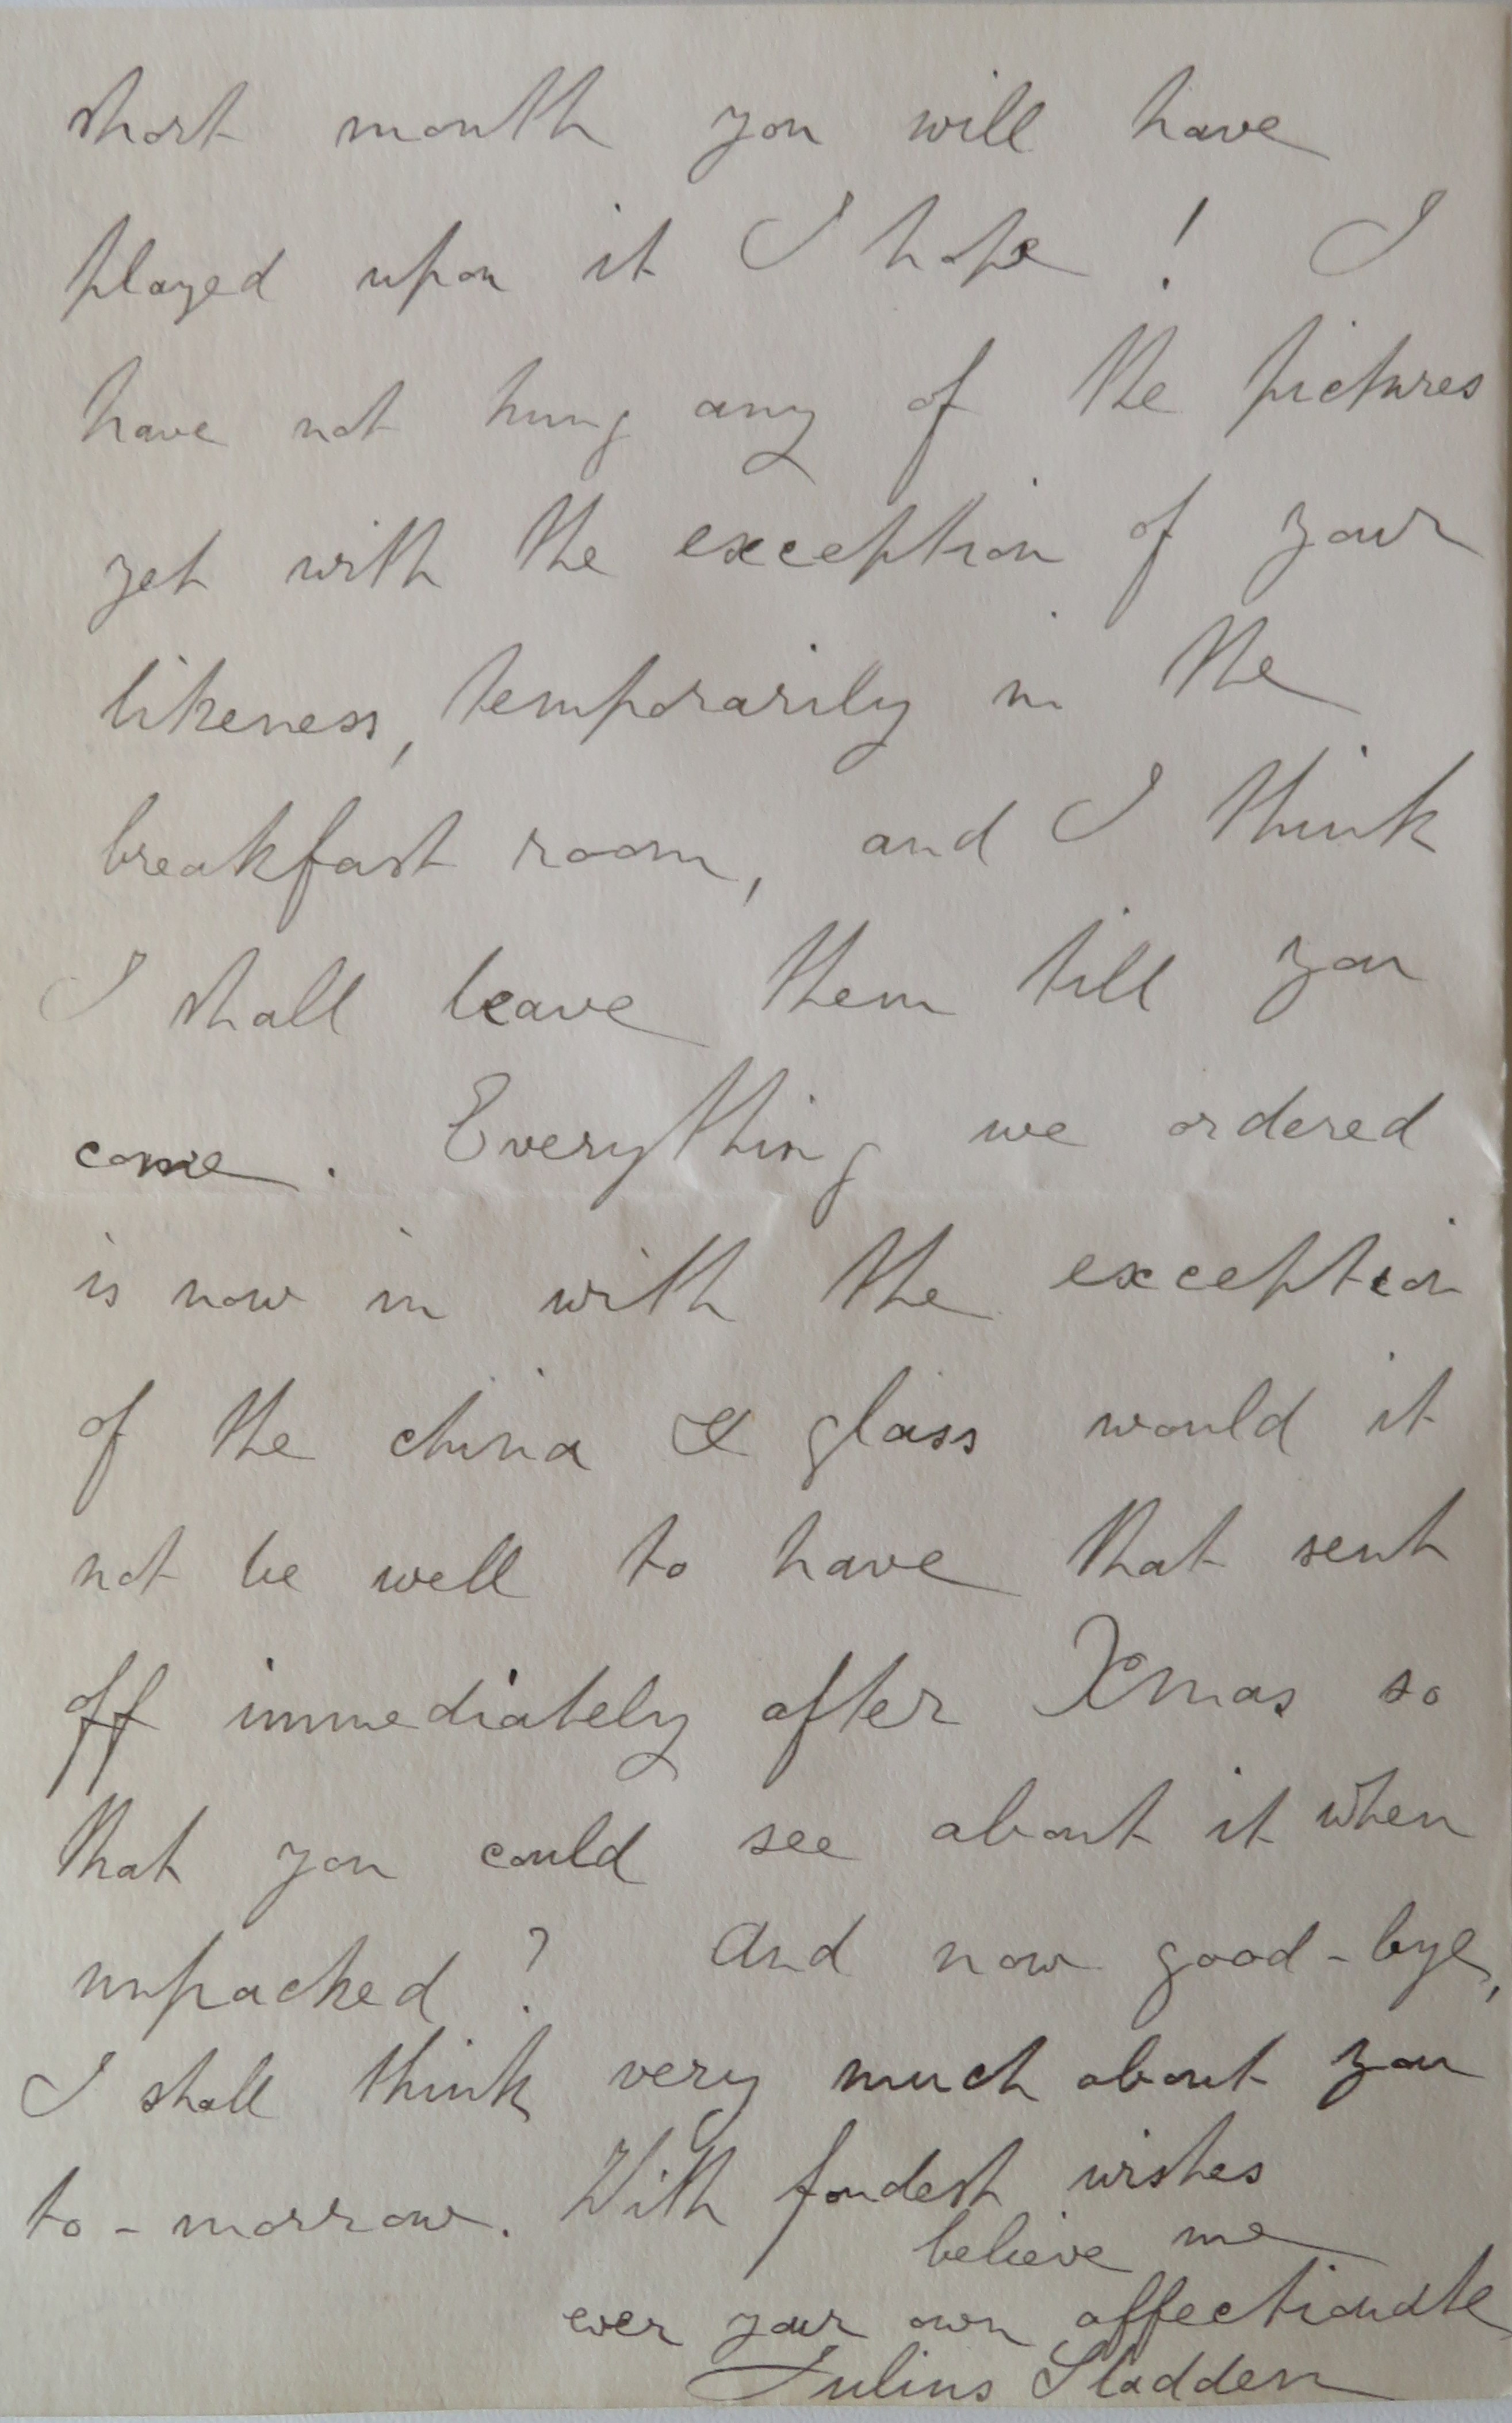 short month you will have
played upon it I hope ! I
have not hung any of the pictures
yet with the exception of your
likeness, temporarily in the
breakfast room, and I think
I shall leave them till you
come. Everything we ordered
is now in with the exception
of the china & glass would it
not be well to have that sent
off immediately after Xmas so
that you could see about it when
unpacked ? And now good-bye,
I shall think very much about you
to-morrow. With fondest wishes
believe me
ever your own affectionate
Julius Sladden